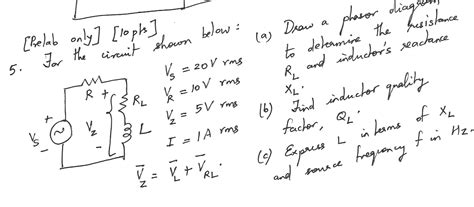 [Prelab only] [10 pts]
5. For the circuit shown below:
R
+
R_L
V_S
+
-
V_Z
L
-
V_S = 20V rms
V_R = 10V rms
V_Z = 5V rms
I = 1A rms
V̅_Z = V̅_L + V̅_RL.
(a) Draw a phasor diagram,
to determine the resistance
R_L and inductor's reactance
X_L.
(b) Find inductor quality
factor, Q_L.
(c) Express L in terms of X_L
and source frequency f in Hz.